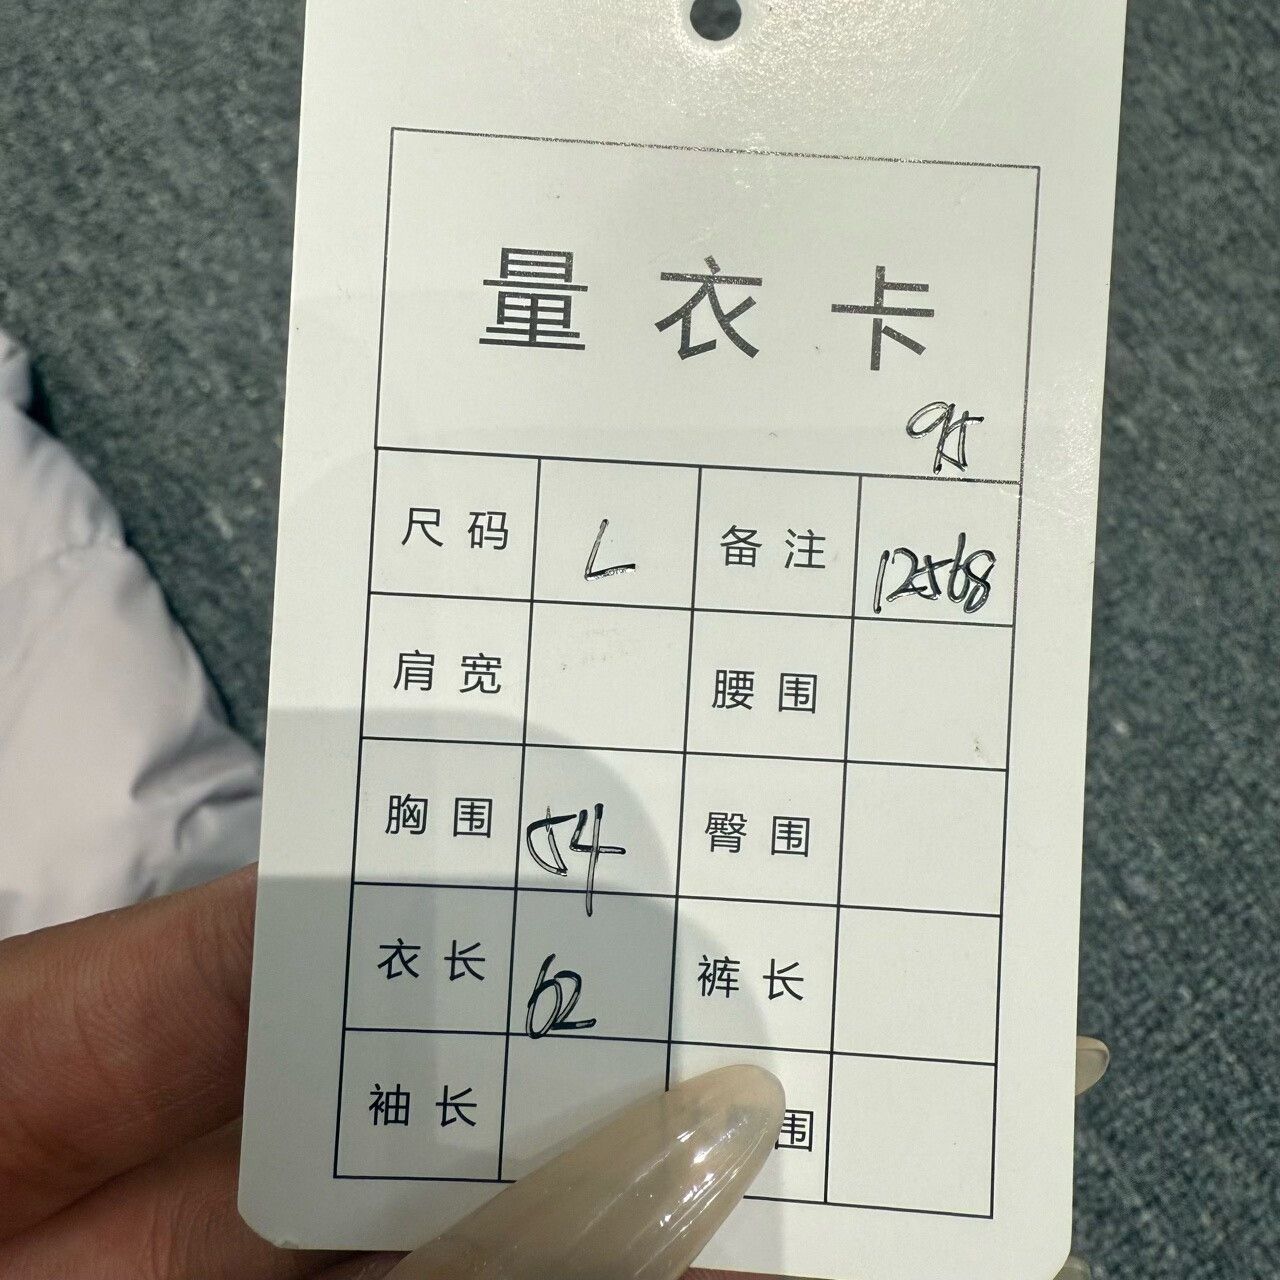 量衣卡
95
尺码 L 备注 12568
肩宽 腰围
胸围 54 臀围
衣长 62 裤长
袖长 围